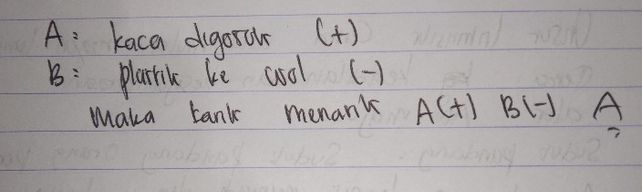 A : kaca digosok (+)
B : plastik ke wol (-)
Maka tarik menarik A(+) B(-) A